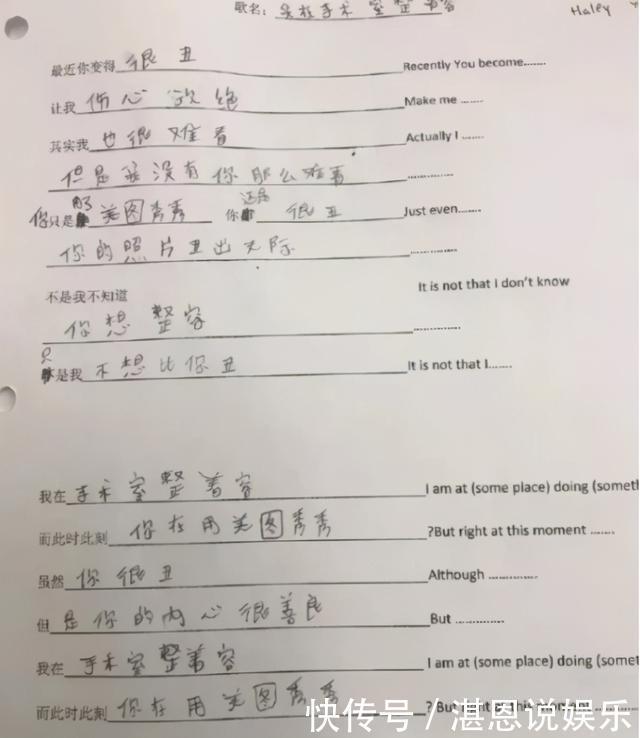 歌名：吴在手术室整着容 Haley
最近你变得 很丑 Recently You become.......
让我 伤心欲绝 Make me .......
其实我 也很难看 Actually I .......
但是我没有你那么难看 ..............
你只是用了美图秀秀 你还是很丑 Just even.......
你的照片丑出天际 ..............
不是我不知道 It is not that I don't know
你想整容 ..............
只是我 不想比你丑 It is not that I.......
我在 手术室整着容 I am at (some place) doing (somet
而此时此刻 你在用美图秀秀 ?But right at this moment .......
虽然 你很丑 Although ..............
但 是你的内心很善良 But ..............
我在 手术室整着容 I am at (some place) doing (somet
而此时此刻 你在用美图秀秀 ? But right at this moment
快传号/湛恩说娱乐